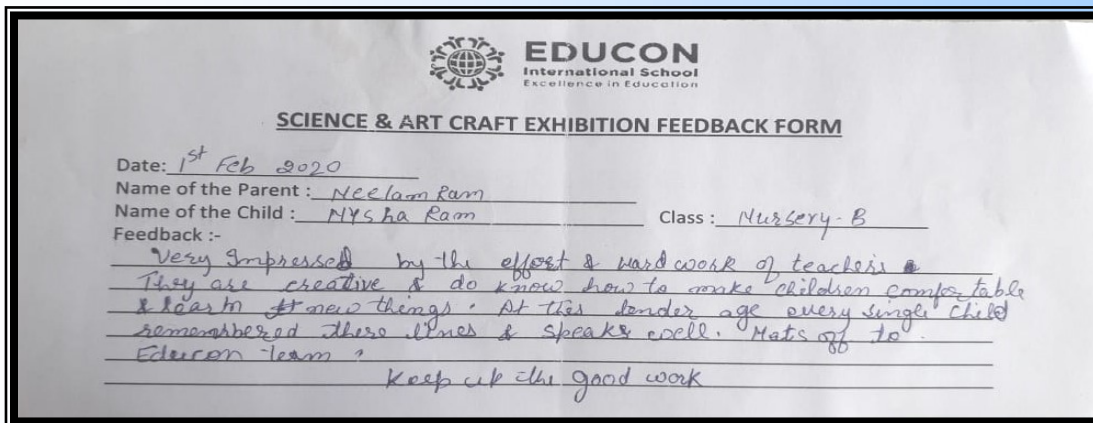 EDUCON
International School
Excellence in Education
SCIENCE & ART CRAFT EXHIBITION FEEDBACK FORM
Date: 1st Feb 2020
Name of the Parent : Neelam Ram
Name of the Child : Nysha Ram Class : Nursery-B
Feedback :-
Very Impressed by the effort & hard work of teachers
They are creative & do know how to make children comfortable
& learn new things. At this tender age every single child
remembered there lines & speaks well. Hats off to
Educon team.
Keep up the good work